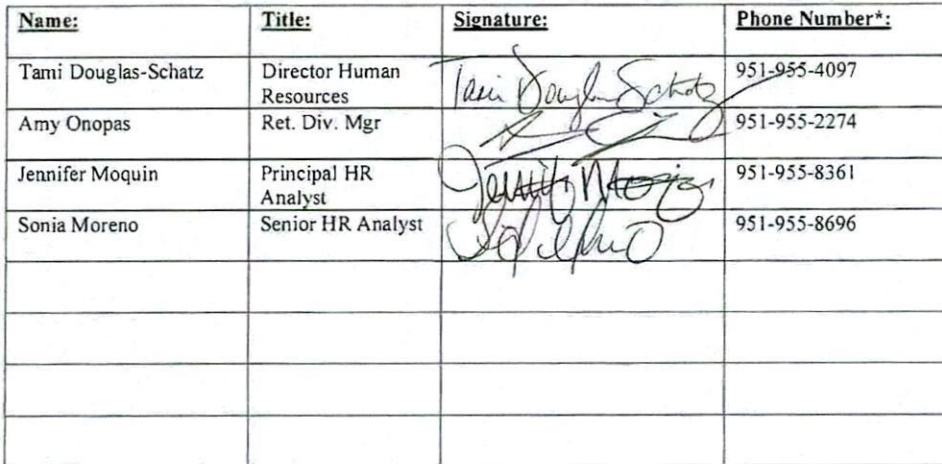 Name: Title: Signature: Phone Number*:
Tami Douglas-Schatz Director Human Resources Tami Douglas Schatz 951-955-4097
Amy Onopas Ret. Div. Mgr 951-955-2274
Jennifer Moquin Principal HR Analyst 951-955-8361
Sonia Moreno Senior HR Analyst 951-955-8696